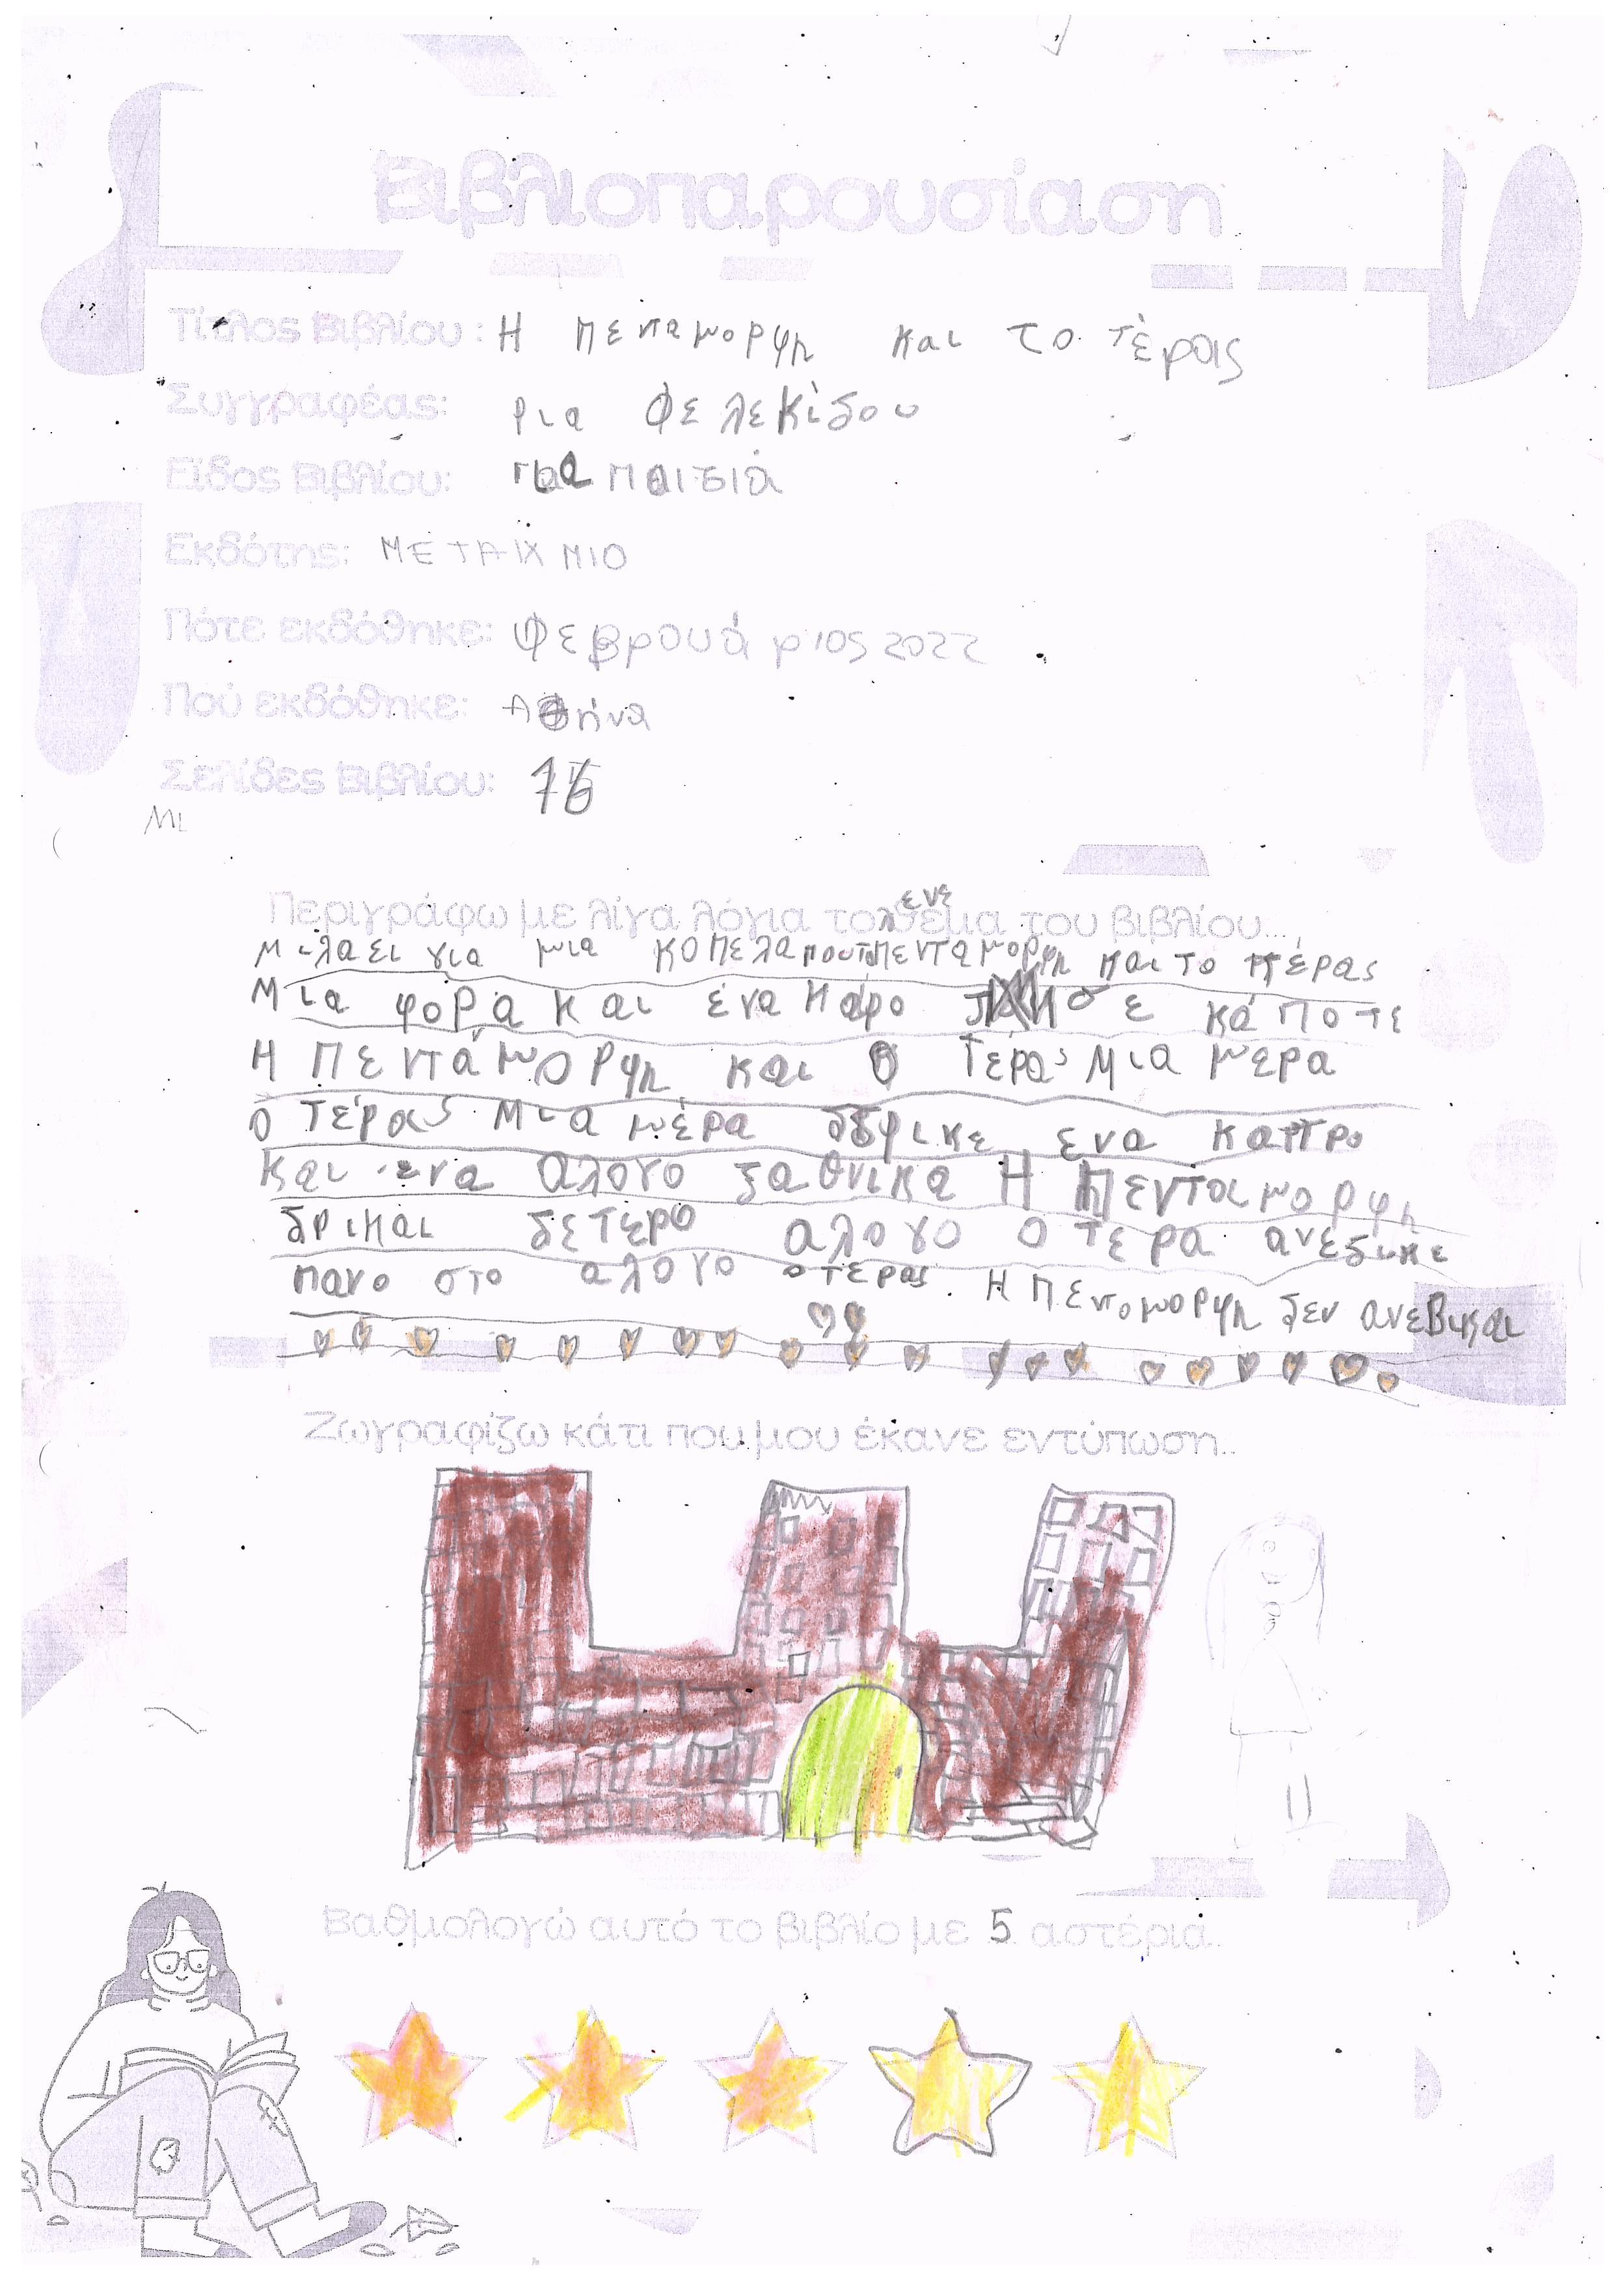 Βιβλιοπαρουσίαση
Τίτλος Βιβλίου: Η πενταμορφη και το τέρας
Συγγραφέας: ρια Φελεκίδου
Είδος Βιβλίου: παιδιά
Εκδότης: ΜΕΤΑΙΧΜΙΟ
Πότε εκδόθηκε: Φεβρουάριος 2022
Πού εκδόθηκε: Αθήνα
Σελίδες Βιβλίου:
Περιγράφω με λίγα λόγια το θέμα του βιβλίου...
λενε
Μιλαει για μια κοπελα που τη πενταμορφη και το τέρας
Μια φορα και ένα καιρο σε κάποτε
Η πεντάμορφη και ο τερας μια μερα
ο τέρας μια μέρα ενα καστρο
και ενα αλογο ξαθνικα Η Πενταμορφη
δετερο αλογο ο τερα
πανο στο αλογο ο τερας. Η πενταμορφη δεν ανεβικαι
Ζωγραφίζω κάτι που μου έκανε εντύπωση...
Βαθμολογώ αυτό το βιβλίο με 5 αστέρια.